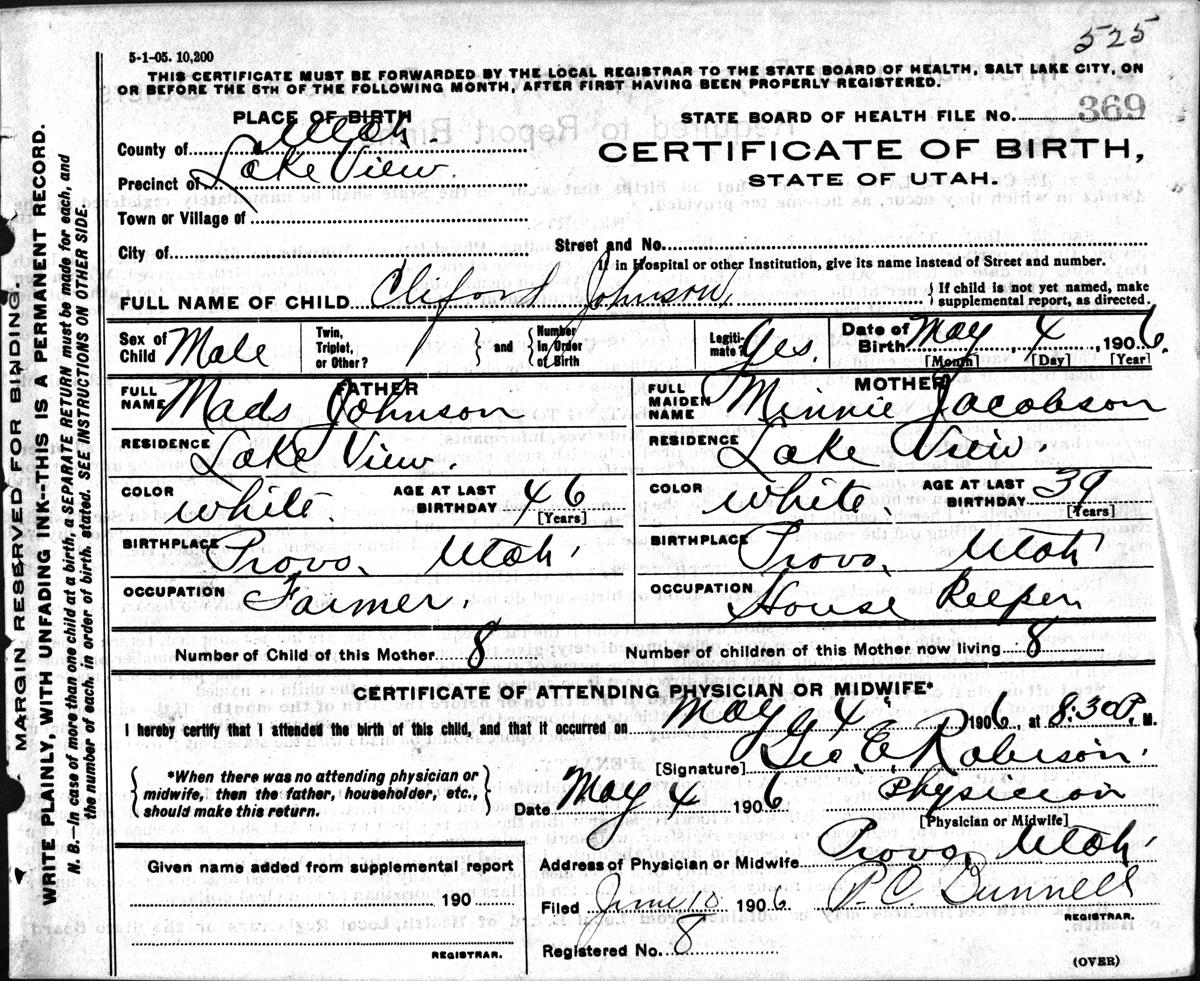 525
5-1-05. 10,200
THIS CERTIFICATE MUST BE FORWARDED BY THE LOCAL REGISTRAR TO THE STATE BOARD OF HEALTH, SALT LAKE CITY, ON
OR BEFORE THE 5TH OF THE FOLLOWING MONTH, AFTER FIRST HAVING BEEN PROPERLY REGISTERED.
PLACE OF BIRTH
STATE BOARD OF HEALTH FILE No. 369
County of Utah.
CERTIFICATE OF BIRTH,
Precinct of Lake View.
STATE OF UTAH.
Town or Village of
City of
Street and No.
If in Hospital or other Institution, give its name instead of Street and number.
FULL NAME OF CHILD Cliford Johnson
If child is not yet named, make
supplemental report, as directed.
Sex of Child Male
Twin, Triplet, or Other? 1 and Number in Order of Birth
Legitimate? Yes.
Date of Birth May 4 1906.
[Month] [Day] [Year]
FATHER
FULL NAME Mads Johnson
RESIDENCE Lake View.
COLOR White. AGE AT LAST BIRTHDAY 46
[Years]
BIRTHPLACE Provo, Utah.
OCCUPATION Farmer.
MOTHER
FULL MAIDEN NAME Minnie Jacobson
RESIDENCE Lake View.
COLOR White. AGE AT LAST BIRTHDAY 39
[Years]
BIRTHPLACE Provo, Utah
OCCUPATION House Keeper
Number of Child of this Mother 8
Number of children of this Mother now living 8
CERTIFICATE OF ATTENDING PHYSICIAN OR MIDWIFE*
I hereby certify that I attended the birth of this child, and that it occurred on May 4 1906, at 8:30 P. M.
[Signature] Geo. E. Robison.
*When there was no attending physician or
midwife, then the father, householder, etc.,
should make this return.
Date May 4 1906 Physician
[Physician or Midwife]
Given name added from supplemental report
190
REGISTRAR.
Address of Physician or Midwife Provo, Utah.
Filed June 10 1906 P. C. Bunnell
REGISTRAR.
Registered No. 8
(OVER)
MARGIN RESERVED FOR BINDING.
WRITE PLAINLY, WITH UNFADING INK--THIS IS A PERMANENT RECORD.
N. B.--In case of more than one child at a birth, a SEPARATE RETURN must be made for each, and
the number of each, in order of birth, stated. SEE INSTRUCTIONS ON OTHER SIDE.